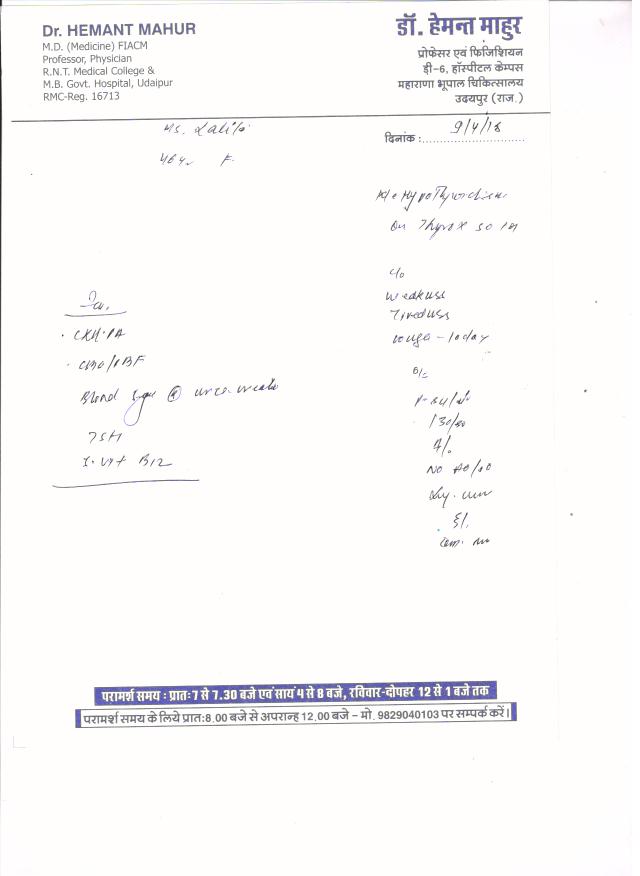 Dr. HEMANT MAHUR
M.D. (Medicine) FIACM
Professor, Physician
R.N.T. Medical College &
M.B. Govt. Hospital, Udaipur
RMC-Reg. 16713
डॉ. हेमन्त माहुर
प्रोफेसर एवं फिजिशियन
डी-6, हॉस्पीटल केम्पस
महाराणा भूपाल चिकित्सालय
उदयपुर (राज.)
दिनांक : 9/4/18
Ms. Lalita
46 y F.
On Thyrox 50
C/o
Weakness
Tiredness
- 10 day
O/E
130/80
Inv.
CXR-PA
CBC/PBF
Blood
TSH
Vit B12
परामर्श समय : प्रातः 7 से 7.30 बजे एवं सायं 4 से 8 बजे, रविवार-दोपहर 12 से 1 बजे तक
परामर्श समय के लिये प्रातः 8.00 बजे से अपरान्ह 12.00 बजे – मो. 9829040103 पर सम्पर्क करें।